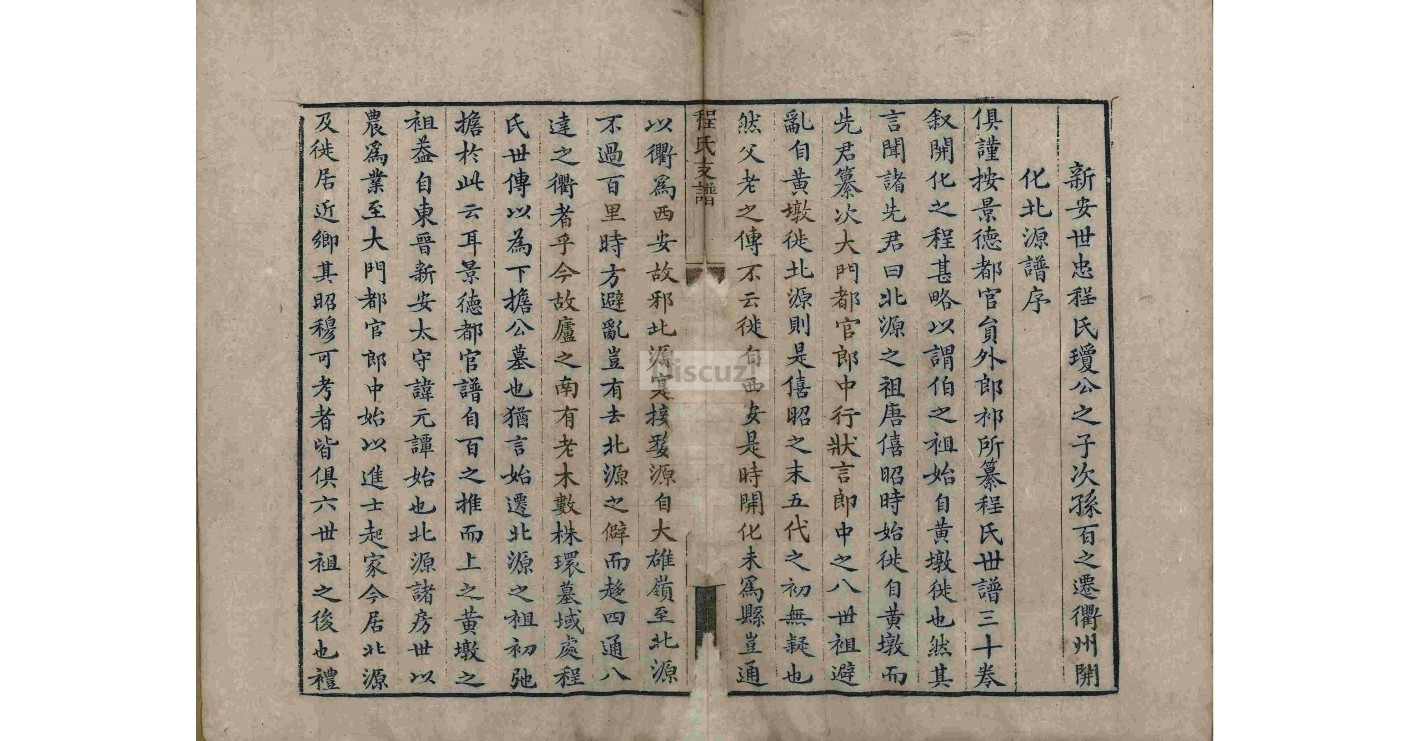 新安世忠程氏瓊公之子次孫百之遷衢州開
化北源譜序
俱謹按景德都官員外郎祁所纂程氏世譜三十卷
叙開化之程甚略以謂伯之祖始自黃墩徙也然其
言聞諸先君曰北源之祖唐僖昭時始徙自黃墩而
先君纂次大門都官郎中行狀言郎中之八世祖避
亂自黃墩徙北源則是僖昭之末五代之初無疑也
然父老之傳不云徙自西安是時開化未爲縣豈通
程氏支譜
以衢爲西安故邪北源寔接婺源自大雄嶺至北源
不過百里時方避亂豈有去北源之僻而趍四通八
達之衢者乎今故廬之南有老木數株環墓域處程
氏世傳以為下擔公墓也猶言始遷北源之祖初弛
擔於此云耳景德都官譜自百之推而上之黃墩之
祖葢自東晉新安太守諱元譚始也北源諸房世以
農爲業至大門都官郎中始以進士起家今居北源
及徙居近鄉其昭穆可考者皆俱六世祖之後也禮
Discuz!